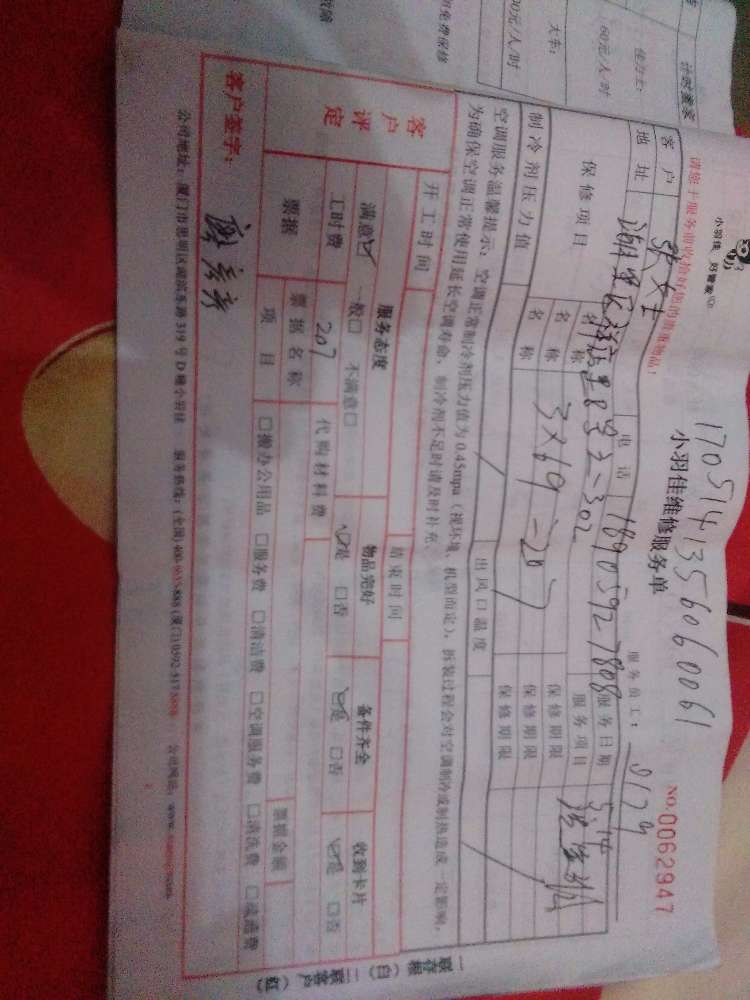 小羽佳 好管家
1705141356060061
小羽佳维修服务单
NO.0062947
请您于服务前收拾好您的贵重物品!
服务员工: 0179
客户 张女士 电话 18905927808 服务日期
地址 服务项目
保修项目 名称 保修期限
名称 3×69=207 保修期限
名称 保修期限
制冷剂压力值 出风口温度
空调服务温馨提示: 空调正常制冷剂压力值为 0.45mpa (视环境、机型而定), 拆装过程会对空调制冷或制热造成一定影响,
为确保空调正常使用延长空调寿命, 制冷剂不足时请及时补充。
开工时间 结束时间
客户评定 服务态度 物品完好 备件齐全 收到卡片
满意☑ 一般□ 不满意□ ☑是 □否 ☑是 □否 ☑是 □否
工时费 207 代购材料费
票据 票据名称 票据金额
项目 □搬办公用品 □服务费 □清洁费 □空调服务费 □清洗费 □疏通费
客户签字:
公司地址: 厦门市思明区湖滨东路 319 号 D 幢小羽佳 服务热线: (全国) (厦门) 公司网址:
一联存根 (白) 二联客户 (红)
计时搬家
60元/人/时
大车: